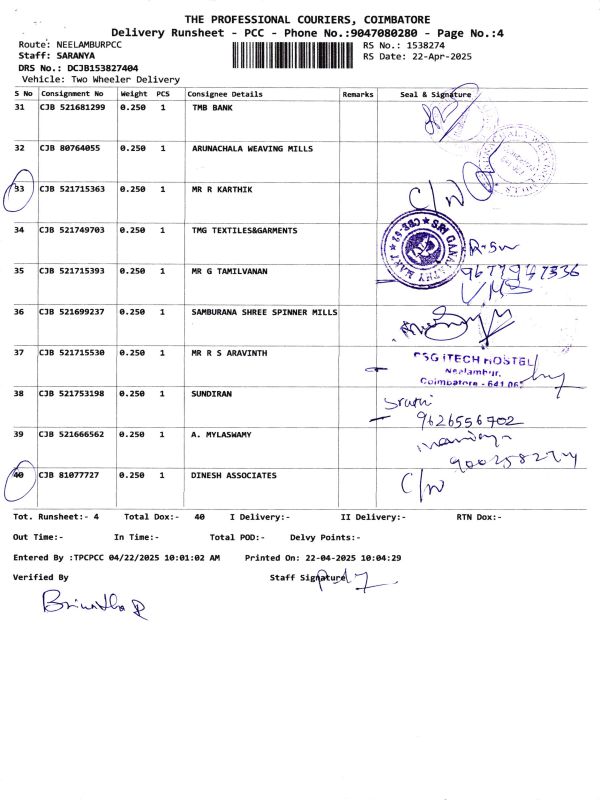 THE PROFESSIONAL COURIERS, COIMBATORE
Delivery Runsheet - PCC - Phone No.:9047080280 - Page No.:4
Route: NEELAMBURPCC
RS No.: 1538274
Staff: SARANYA
RS Date: 22-Apr-2025
DRS No.: DCJB153827404
Vehicle: Two Wheeler Delivery
S No Consignment No Weight PCS Consignee Details Remarks Seal & Signature
31 CJB 521681299 0.250 1 TMB BANK
32 CJB 80764055 0.250 1 ARUNACHALA WEAVING MILLS
33 CJB 521715363 0.250 1 MR R KARTHIK C/N
34 CJB 521749703 0.250 1 TMG TEXTILES&GARMENTS
35 CJB 521715393 0.250 1 MR G TAMILVANAN
36 CJB 521699237 0.250 1 SAMBURANA SHREE SPINNER MILLS
37 CJB 521715530 0.250 1 MR R S ARAVINTH
PSG iTECH HOSTEL
Neelambur,
Coimbatore - 641 062
38 CJB 521753198 0.250 1 SUNDIRAN
9626556702
39 CJB 521666562 0.250 1 A. MYLASWAMY
40 CJB 81077727 0.250 1 DINESH ASSOCIATES C/N
Tot. Runsheet:- 4 Total Dox:- 40 I Delivery:- II Delivery:- RTN Dox:-
Out Time:- In Time:- Total POD:- Delvy Points:-
Entered By :TPCPCC 04/22/2025 10:01:02 AM Printed On: 22-04-2025 10:04:29
Verified By Staff Signature